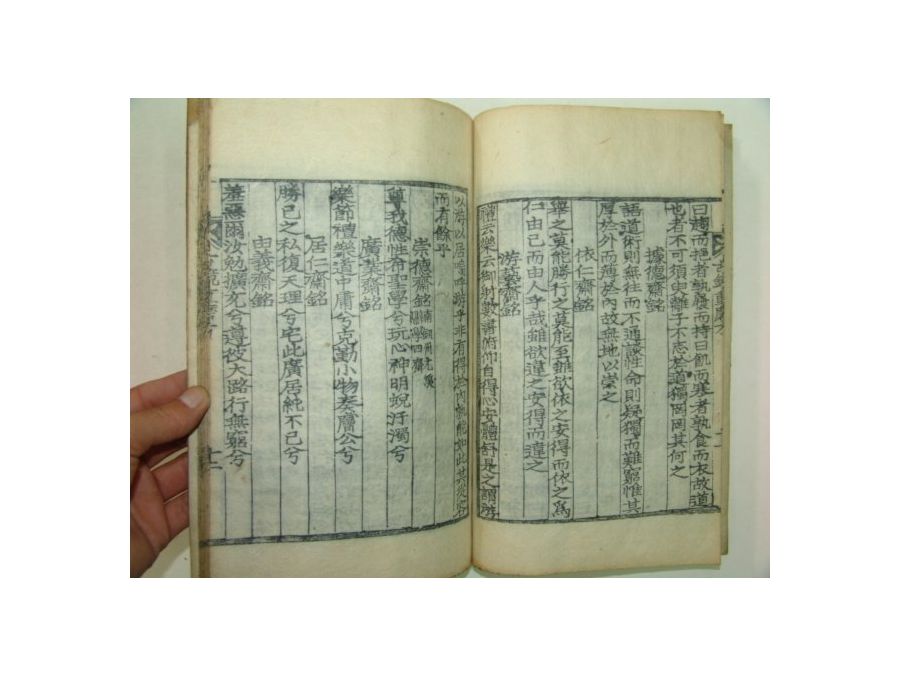 曰趨而挹者孰履而持曰飢而寒者孰食而衣故道
也者不可須臾離子不志於道獨罔罔其何之
據德齋銘
語道術則無往而不通談性命則疑獨而難窮惟其
厚於外而薄於內故無地以崇之
依仁齋銘
舉之莫能勝行之莫能至雖欲依之安得而依之為
仁由己而由人乎哉雖欲違之安得而違之
游藝齋銘
禮云樂云御射數書俯仰自得心安體舒是之謂游
以游以居嗚呼游乎非有得於內孰能如此其從容
而有餘乎
崇德齋銘 南劒州尤溪縣學四齋
尊我德性希聖學兮玩心神明蛻汙濁兮
廣業齋銘
樂節禮樂道中庸兮克勤小物奏膚公兮
居仁齋銘
勝己之私復天理兮宅此廣居純不已兮
由義齋銘
羞惡爾汝勉擴充兮遵彼大路行無窮兮
十二